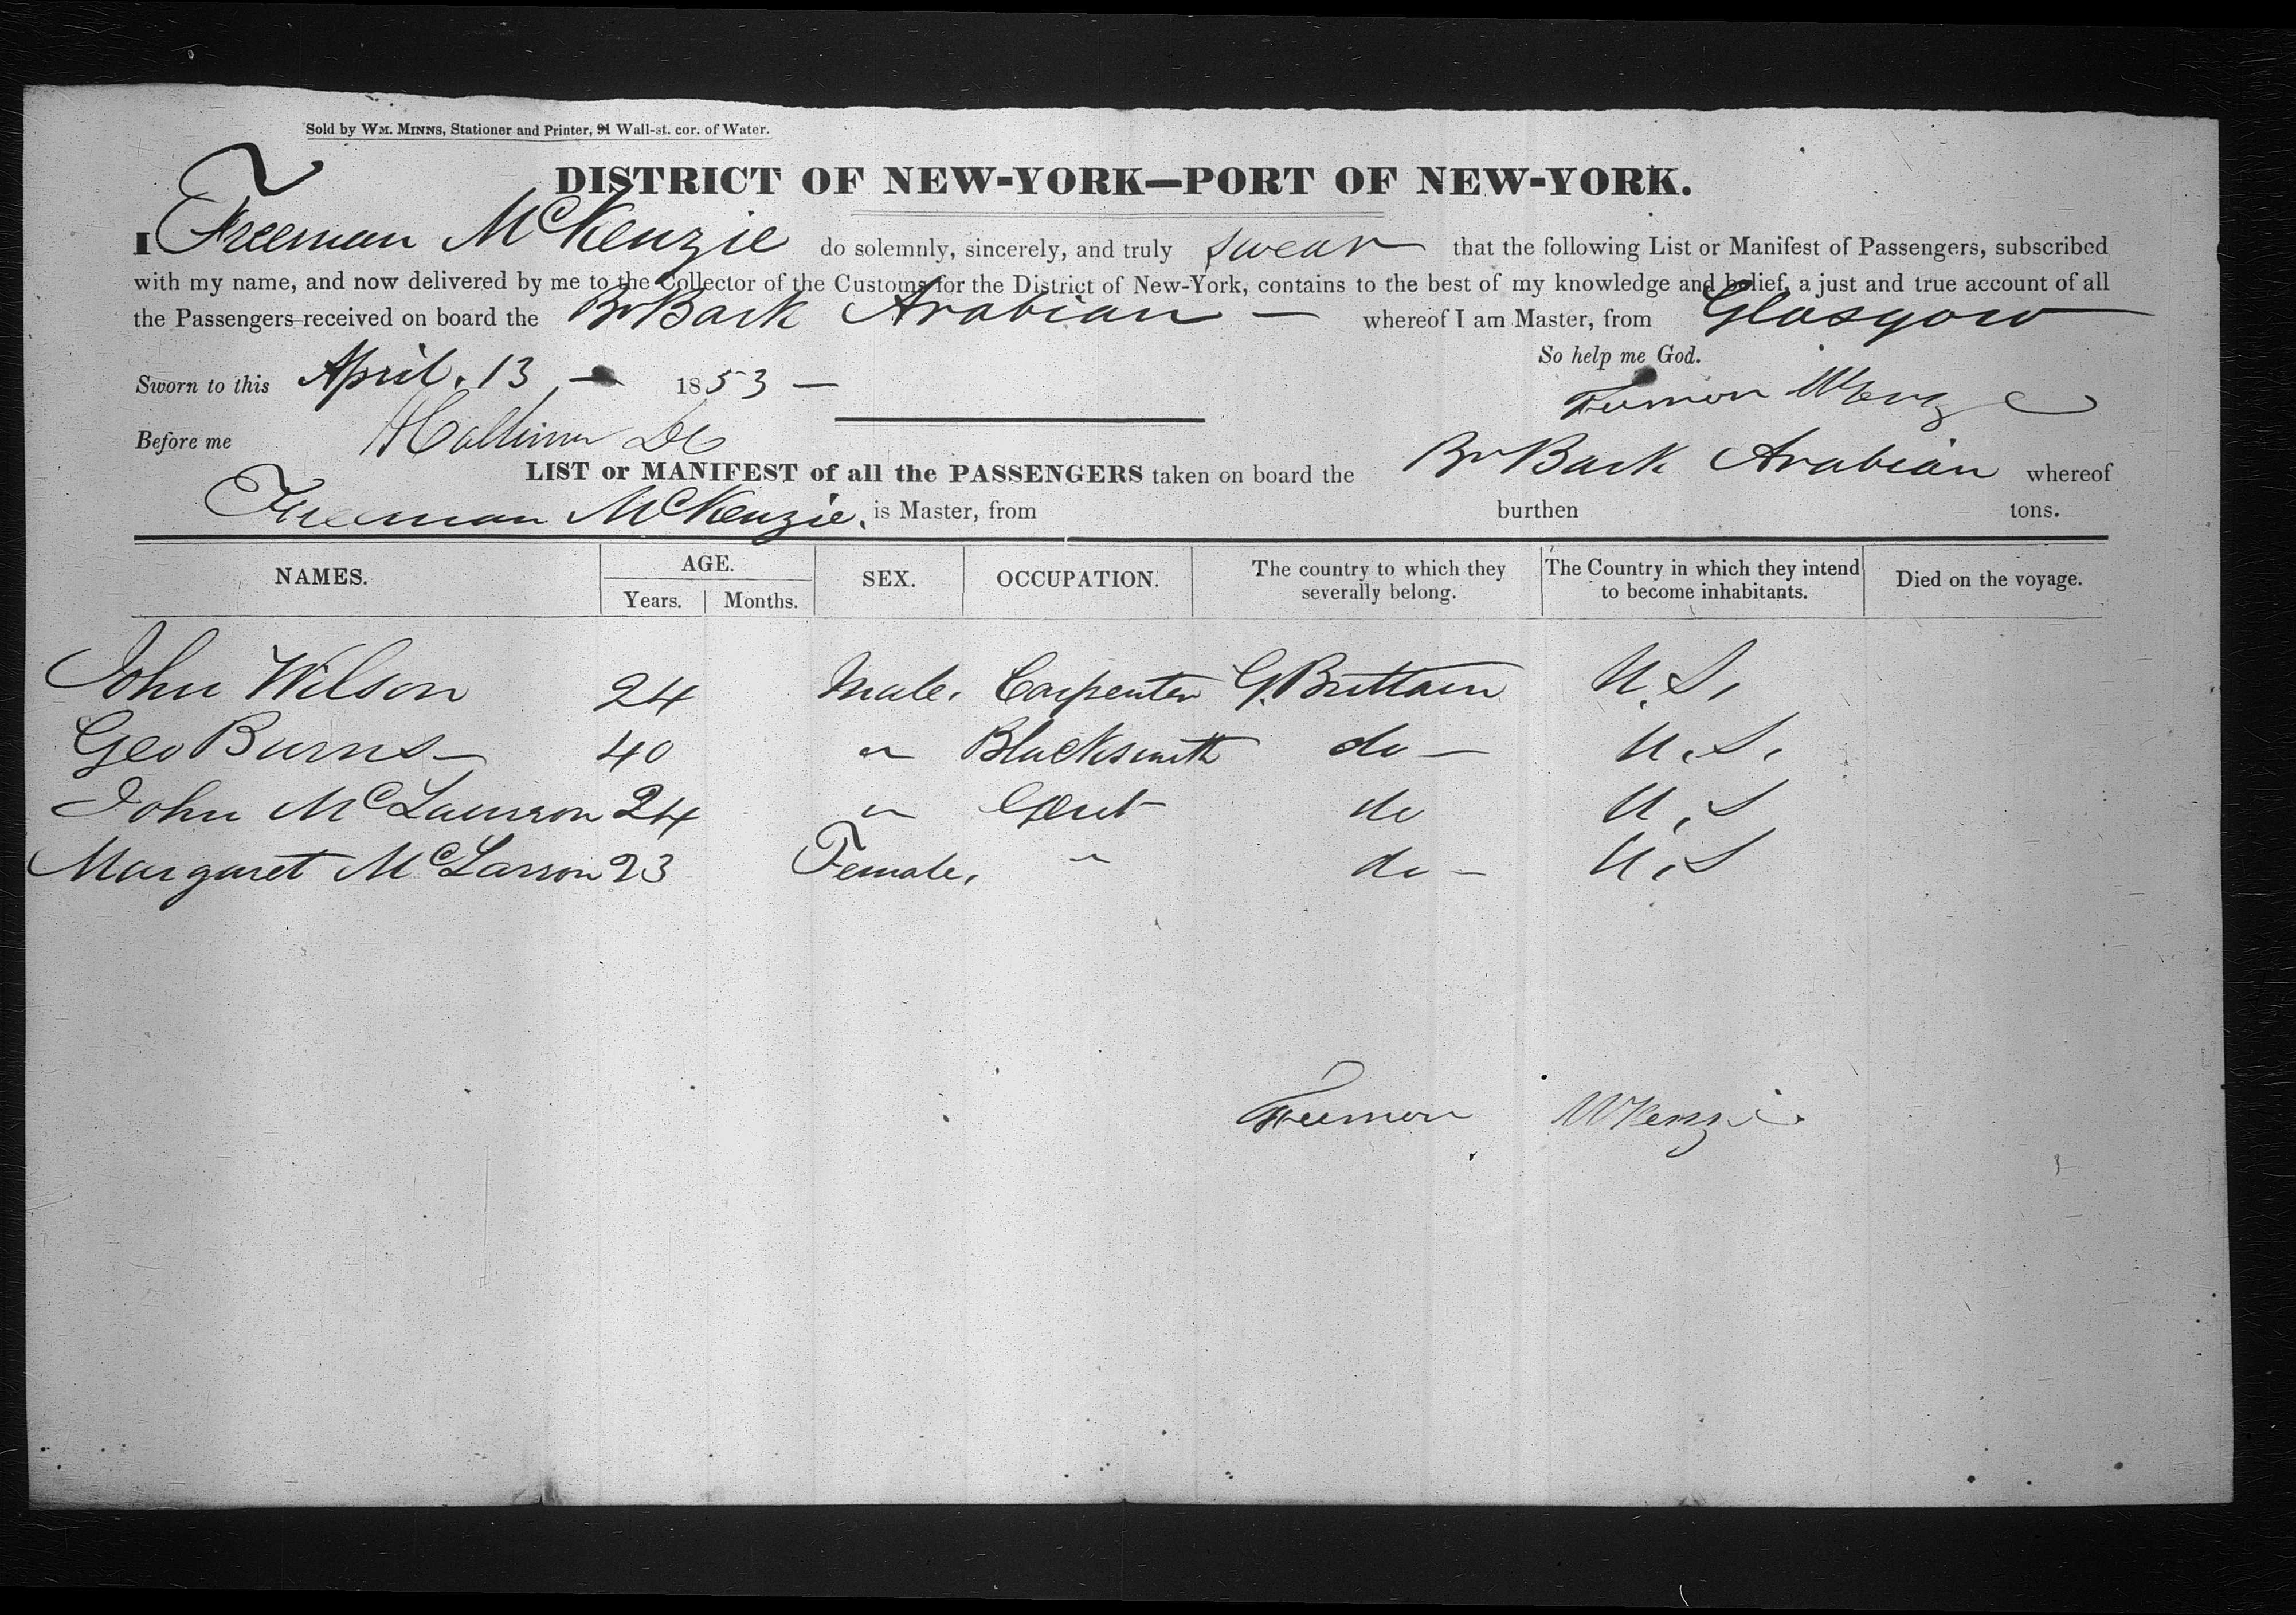 Sold by WM. MINNS, Stationer and Printer, 91 Wall-st. cor. of Water.
DISTRICT OF NEW-YORK—PORT OF NEW-YORK.
I Freeman McKenzie do solemnly, sincerely, and truly swear that the following List or Manifest of Passengers, subscribed
with my name, and now delivered by me to the Collector of the Customs for the District of New-York, contains to the best of my knowledge and belief, a just and true account of all
the Passengers received on board the Br Bark Arabian — whereof I am Master, from Glasgow
So help me God.
Sworn to this April. 13 — 1853 —
Freeman McKenzie
Before me
LIST or MANIFEST of all the PASSENGERS taken on board the Br Bark Arabian whereof
Freeman McKenzie. is Master, from burthen tons.
NAMES. AGE. Years. Months. SEX. OCCUPATION. The country to which they severally belong. The Country in which they intend to become inhabitants. Died on the voyage.
John Wilson 24 Male. Carpenter G. Brittain U.S.
Geo Burns — 40 " Blacksmith do — U.S.
John 24 " Gent do U.S
Margaret McLarson 23 Female. " do — U.S
Freeman McKenzie